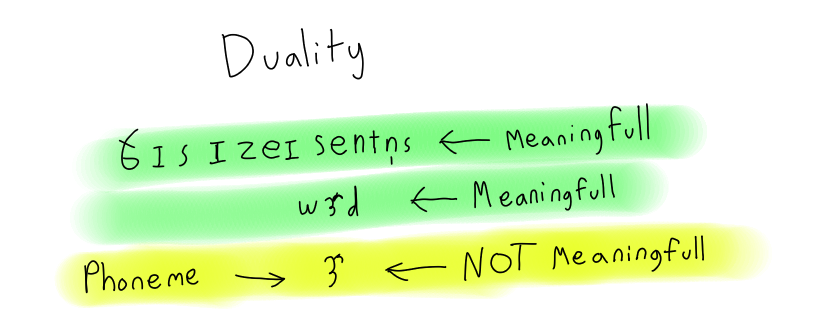 Duality
ðɪs ɪzeɪ sentn̩s ← Meaningfull
wɝd ← Meaningfull
Phoneme → ɝ ← NOT Meaningfull